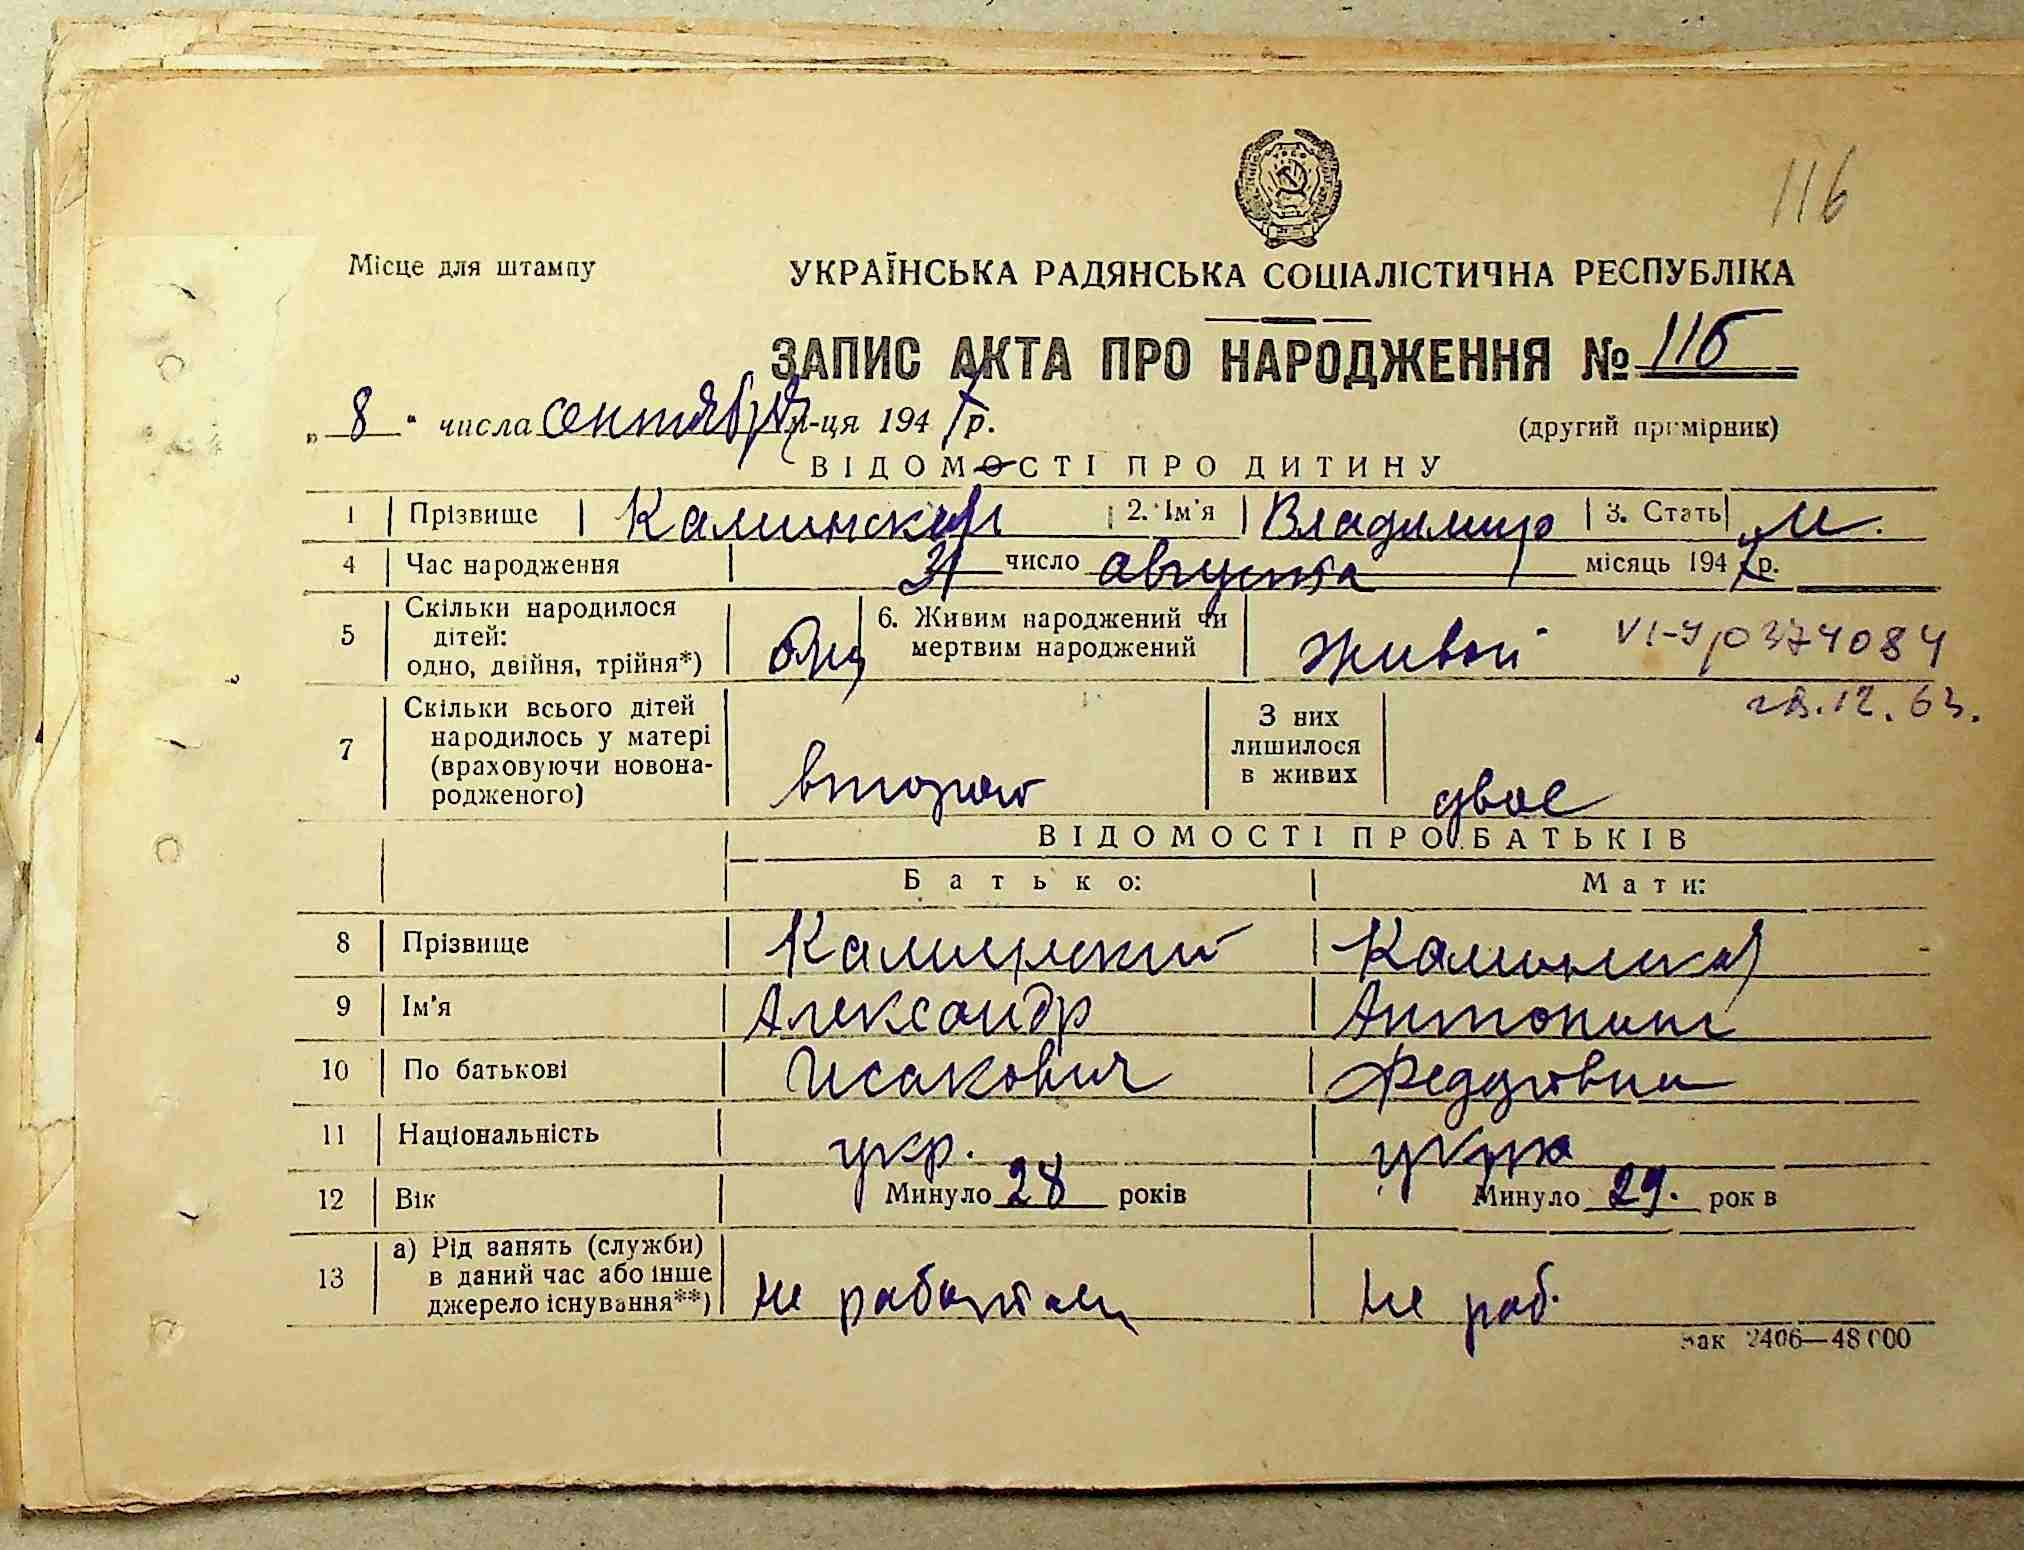 116
Місце для штампу
УКРАЇНСЬКА РАДЯНСЬКА СОЦІАЛІСТИЧНА РЕСПУБЛІКА
ЗАПИС АКТА ПРО НАРОДЖЕННЯ № 116
„ 8 " числа сентября м-ця 1947 р.
(другий примірник)
ВІДОМОСТІ ПРО ДИТИНУ
1 Прізвище Каминский 2. Ім'я Владимир 3. Стать м.
4 Час народження 31 число августа місяць 1947 р.
5 Скільки народилося дітей: одно, двійня, трійня*) 6. Живим народжений чи мертвим народжений живой
0374084
12.63.
7 Скільки всього дітей народилось у матері (враховуючи новонародженого) второй З них лишилося в живих двое
ВІДОМОСТІ ПРО БАТЬКІВ
Батько: Мати:
8 Прізвище Каминский Каминская
9 Ім'я Александр Антонина
10 По батькові Исакович
11 Національність укр. укрка
12 Вік Минуло 28 років Минуло 29. рок в
13 а) Рід занять (служби) в даний час або інше джерело існування**) не работает не раб.
Зак 2406—48 000